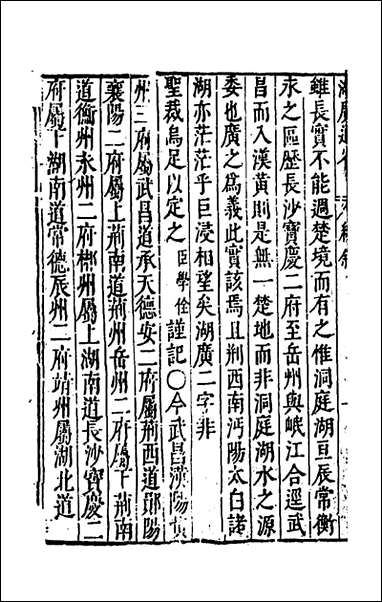 雖長實不能週楚境而有之惟洞庭湖亘辰常衡
永之區歷長沙寶慶二府至岳州與岷江合逕武
昌而入漢黃則是無一楚地而非洞庭湖水之源
委也廣之為義此實該焉且荆西南沔陽太白諸
湖亦茫茫乎巨浸相望矣湖廣二字非
聖裁烏足以定之臣學佺謹記○今武昌漢陽黃
州三府屬武昌道承天德安二府屬荆西道鄖陽
襄陽二府屬上荆南道荆州岳州二府屬下荆南
道衡州永州二府郴州屬上湖南道長沙寶慶二
府屬下湖南道常德辰州二府靖州屬湖北道